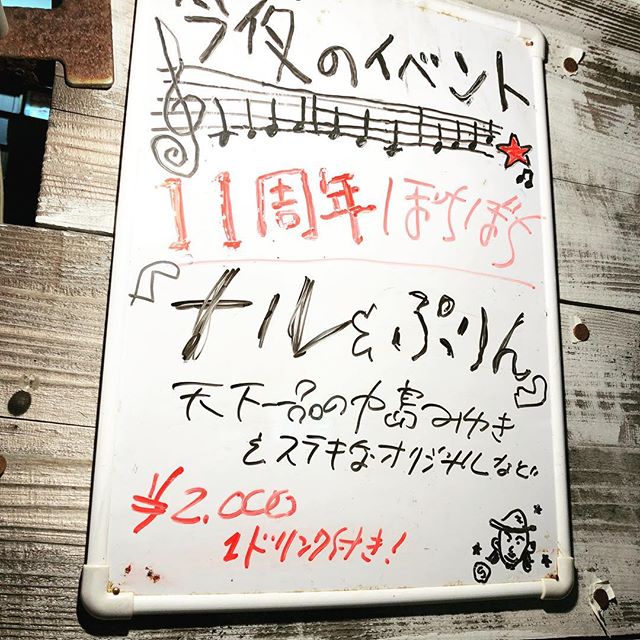 今夜のイベント
11周年ぼちぼち
『ナルとぷりん』
天下一品の中島みゆき
とステキなオリジナルなど
¥2.000
1ドリンク付き!